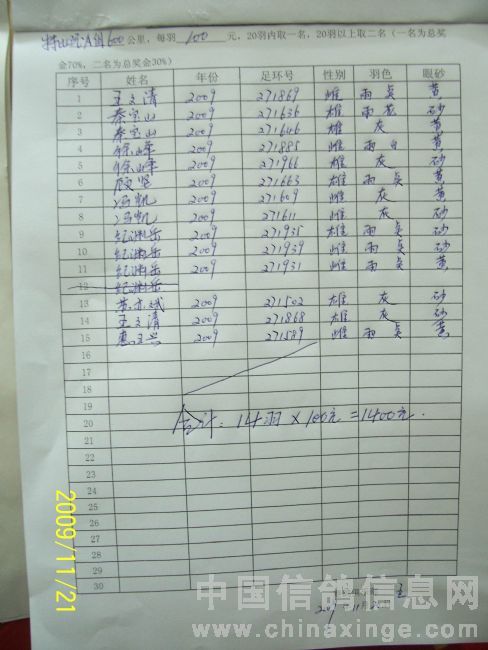 A组600公里，每羽100元，20羽内取一名，20羽以上取二名（一名为总奖
金70%，二名为总奖金30%）
序号 姓名 年份 足环号 性别 羽色 眼砂
1 王文清 2009 271869 雌 雨点 黄
2 秦宝山 2009 271636 雄 雨花 砂
3 秦宝山 2009 271646 雄 灰 黄
4 徐峰 2009 271885 雌 雨白 黄
5 徐峰 2009 271966 雄 灰 砂
6 顾坚 2009 271663 雄 雨点 黄
7 冯凯 2009 271609 雌 灰 黄
8 冯凯 2009 271611 雌 灰 砂
9 纪渊岳 2009 271935 雄 雨点 砂
10 纪渊岳 2009 271939 雌 雨点 砂
11 纪渊岳 2009 271931 雌 雨点 黄
12 纪渊岳
13 2009 271502 雄 灰 砂
14 王文清 2009 271868 雄 灰 砂
15 惠文兴 2009 271589 雌 雨点 黄
16
17
18
19
20 合计：14羽×100元=1400元.
21
22
23
24
25
26
27
28
29
30
2009/11/21
中国信鸽信息网
www.chinaxinge.com